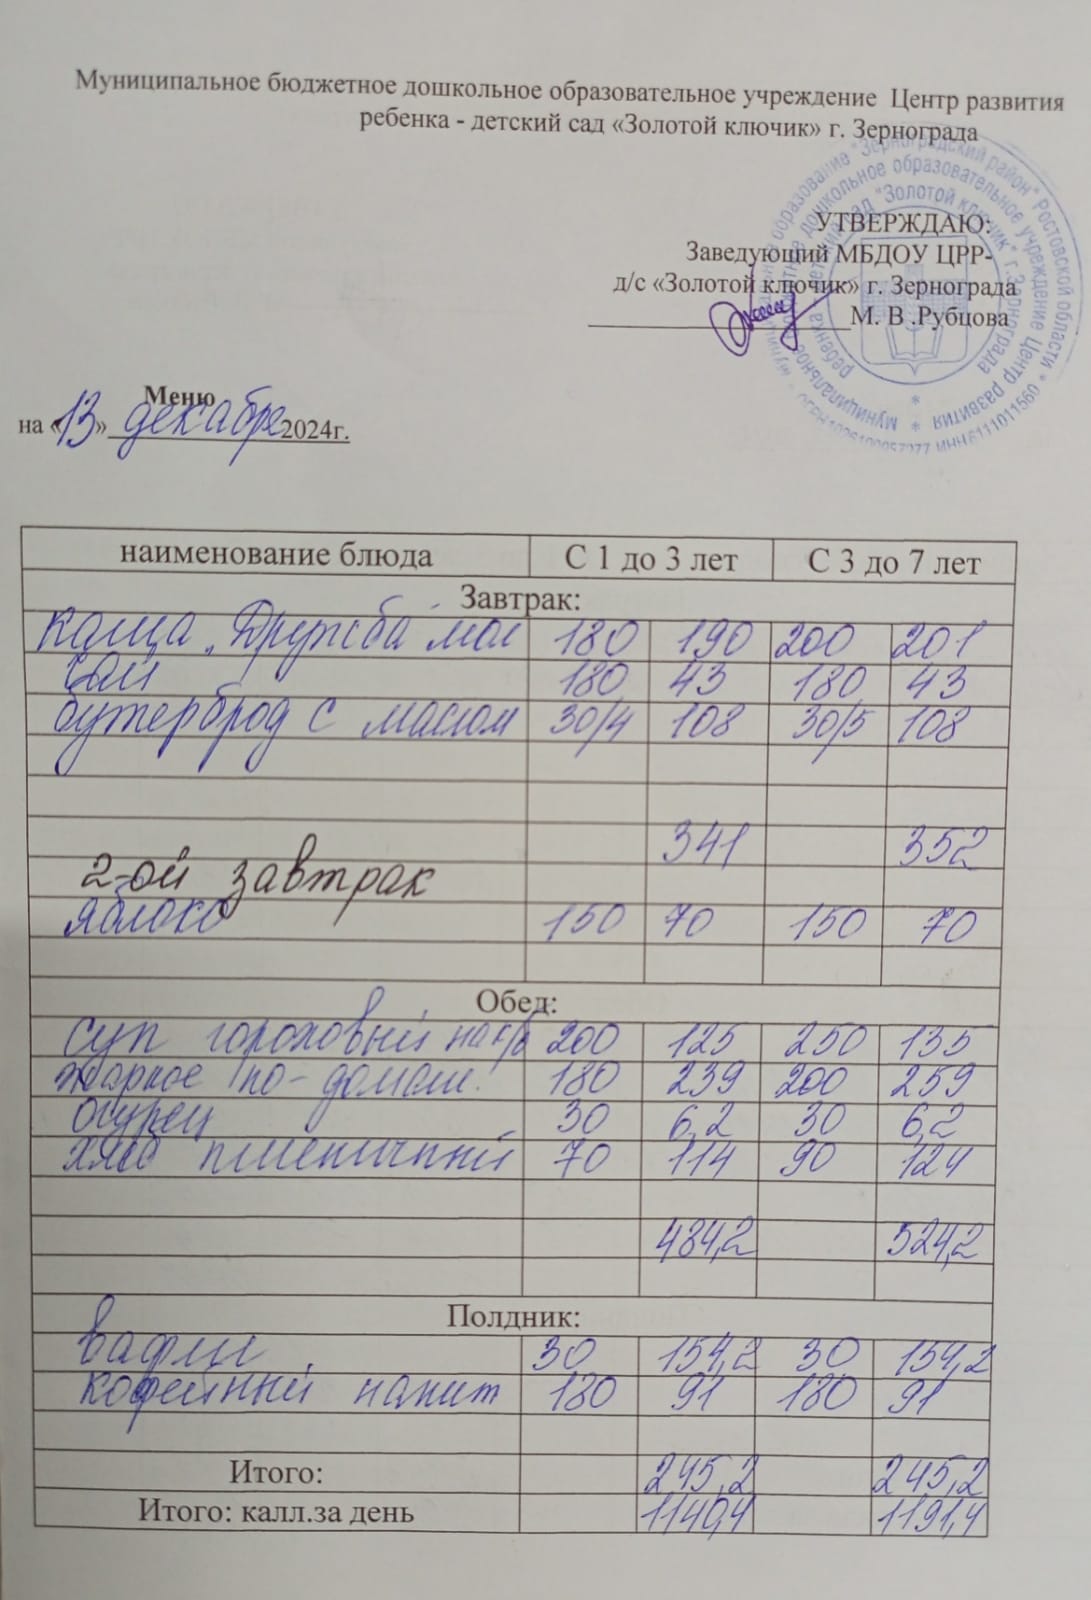 Муниципальное бюджетное дошкольное образовательное учреждение Центр развития
ребенка - детский сад «Золотой ключик» г. Зернограда
УТВЕРЖДАЮ:
Заведующий МБДОУ ЦРР-
д/с «Золотой ключик» г. Зернограда
М. В .Рубцова
Меню
на «13» декабре 2024г.
наименование блюда С 1 до 3 лет С 3 до 7 лет
Завтрак:
каша „Дружба мол 180 190 200 201
чай 180 43 180 43
бутерброд с маслом 30/4 108 30/5 108
341 352
2-ой завтрак
яблоко 150 70 150 70
Обед:
суп гороховый на к/б 200 125 250 135
жаркое по-домаш. 180 239 200 259
огурец 30 6,2 30 6,2
хлеб пшеничный 70 114 90 124
484,2 524,2
Полдник:
вафли 30 154,2 30 154,2
кофейный напит 180 91 180 91
Итого: 245,2 245,2
Итого: калл.за день 1140,4 1191,4